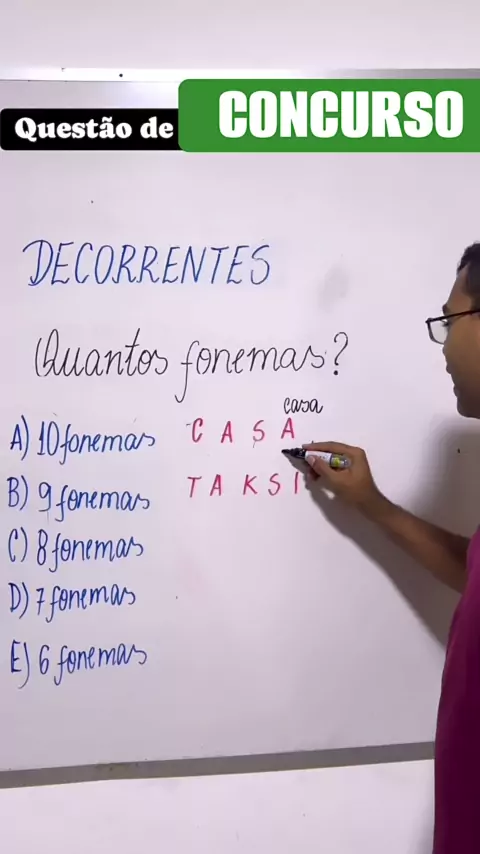 Questão de CONCURSO
DECORRENTES
Quantos fonemas?
casa
A) 10 fonemas
C A S A
B) 9 fonemas
T A K S I
C) 8 fonemas
D) 7 fonemas
E) 6 fonemas